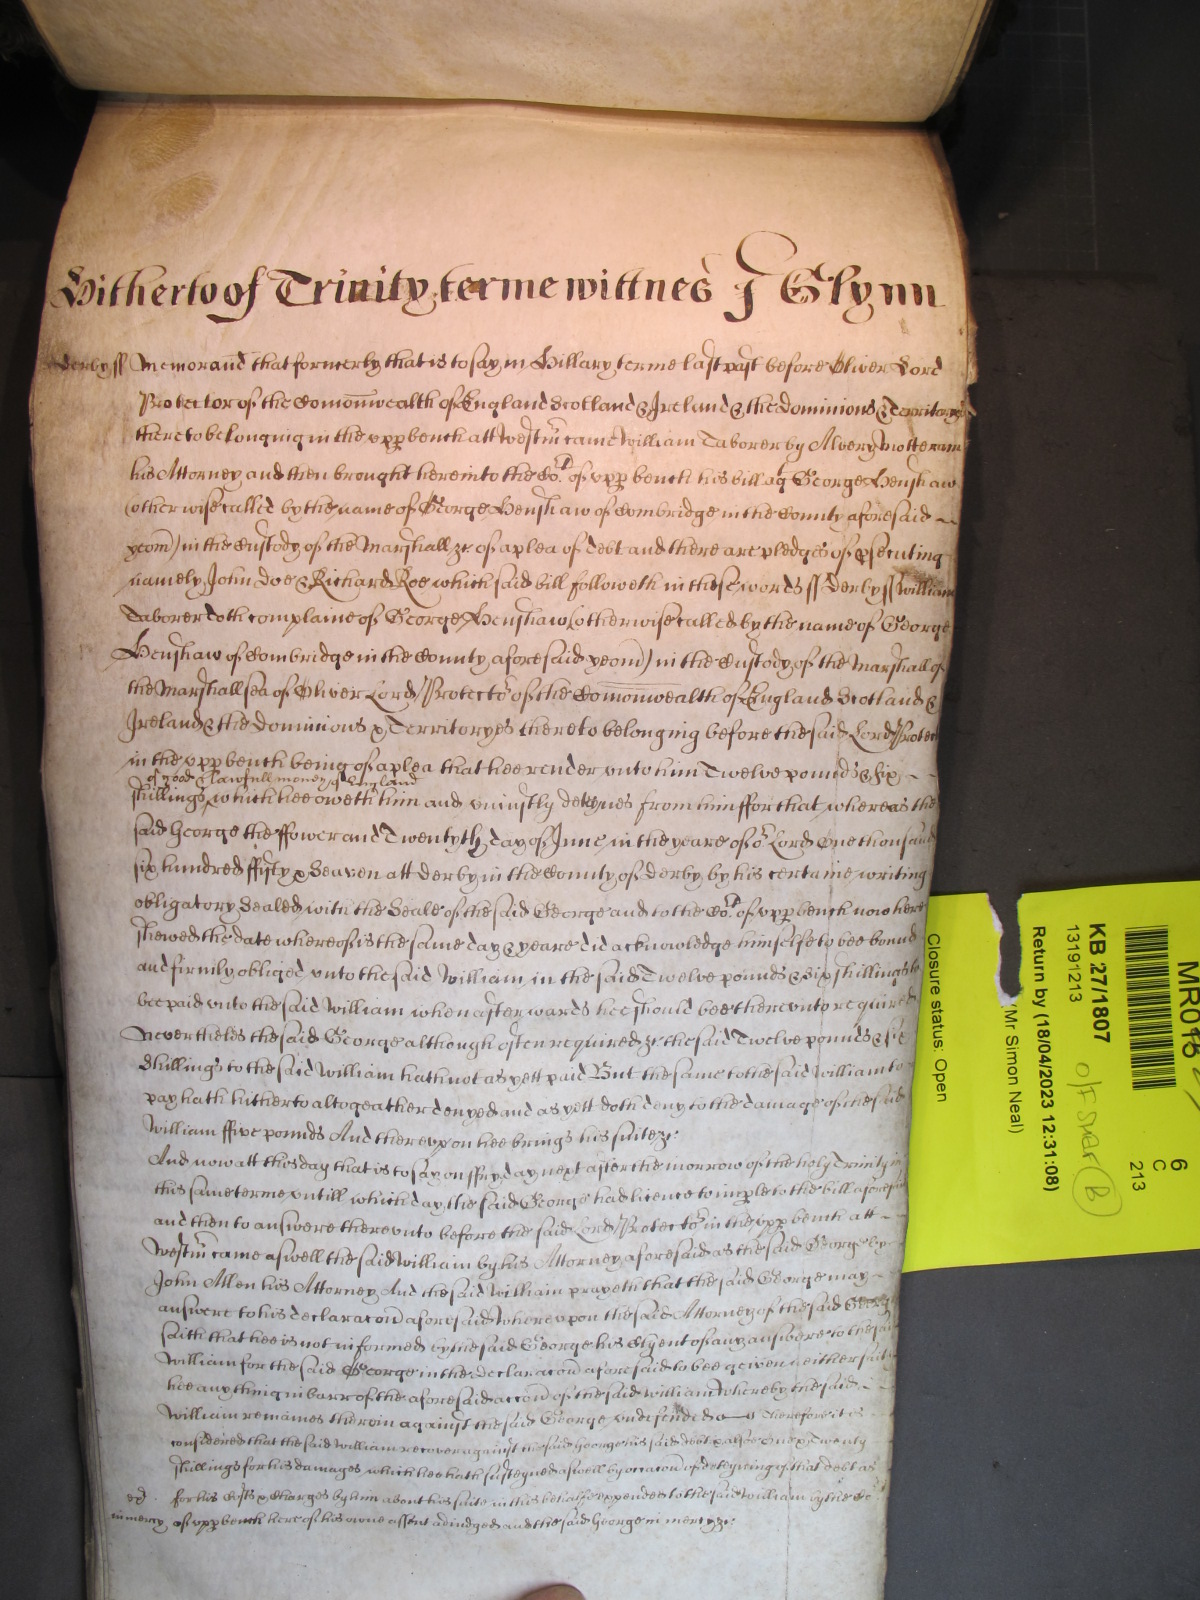 Hitherto of Trinity terme wittnes J Glynn
Derby ss Memorand that formerly that is to say in Hillary terme last past before Oliver Lord
Protector of the Comonwealth of England Scotland & Ireland & the Dominions & Territoryes
thereto belonging in the upp bench att Westm came William Taborer by Alvery Motteram
his Attorney and then brought here into the Cot of upp bench his bill agt George Henshaw
(otherwise called by the name of George Henshaw of Combridge in the County aforesaid
yeom) in the Custody of the Marshall &c of a plea of Debt and there are pledges of psecuting
namely John Doe & Richard Roe which said bill followeth in these words ss Derby ss William
Taborer doth complaine of George Henshaw (otherwise called by the name of George
Henshaw of Combridge in the County aforesaid yeom) in the Custody of the Marshall of
the Marshallsea of Oliver Lord Protector of the Comonwealth of England Scotland &
Ireland & the Dominions & Territoryes thereto belonging before the said Lord Protector
in the upp bench being of a plea that hee render unto him Twelve pounds & six
of good & lawfull money of England
shillings which hee oweth him and uniustly deteynes from him ffor that whereas the
said George the ffower and Twentyth day of June in the yeare of or Lord One thousand
six hundred ffifty & Seaven att Derby in the County of Derby by his certaine writing
obligatory Sealed with the Seale of the said George and to the Cot of upp bench now here
shewed the date whereof is the same day & yeare did acknowledge himselfe to bee bound
and firmly obliged unto the said William in the said Twelve pounds & six shillings to
bee paid unto the said William when afterwards hee should bee thereunto required
Nevertheles the said George although often required &c the said Twelve pounds & six
Shillings to the said William hath not as yett paid But the same to the said William to
pay hath hitherto altogeather denyed and as yett doth deny to the damage of the said
William ffive pounds And thereupon hee brings his suite &c
And now att this day that is to say on ffryday next after the morrow of the holy Trinity in
this same terme untill which day the said George had licence to imple to the bill aforesaid
and then to answere thereunto before the said Lord Protector in the upp bench att
Westm came aswell the said William by his Attorney aforesaid as the said George by
John Allen his Attorney And the said William prayeth that the said George may
answere to his declaracon aforesaid Whereupon the said Attorney of the said George
saith that hee is not informed by the said George his Clyent of any answere to the said
William for the said George in the declaracon aforesaid to bee given neither saith
hee any thing in barr of the aforesaid accon of the said William whereby the said
William remaines therein against the said George undefended &c Therefore it is
considered that the said William recover against the said George his said debt & alsoe One & Twenty
shillings for his damages which hee hath susteyned aswell by occacon of deteyneing of that debt as
for his Costs & Charges by him about his suite in this behalfe expended to the said William by the Cot
in mercy of upp bench here of his owne assent adiudged and the said George in mercy &c
MR015
6
C
213
KB 27/1807
13191213
O/F Shelf (B)
Return by (18/04/2023 12:31:08)
Mr Simon Neal)
Closure status: Open